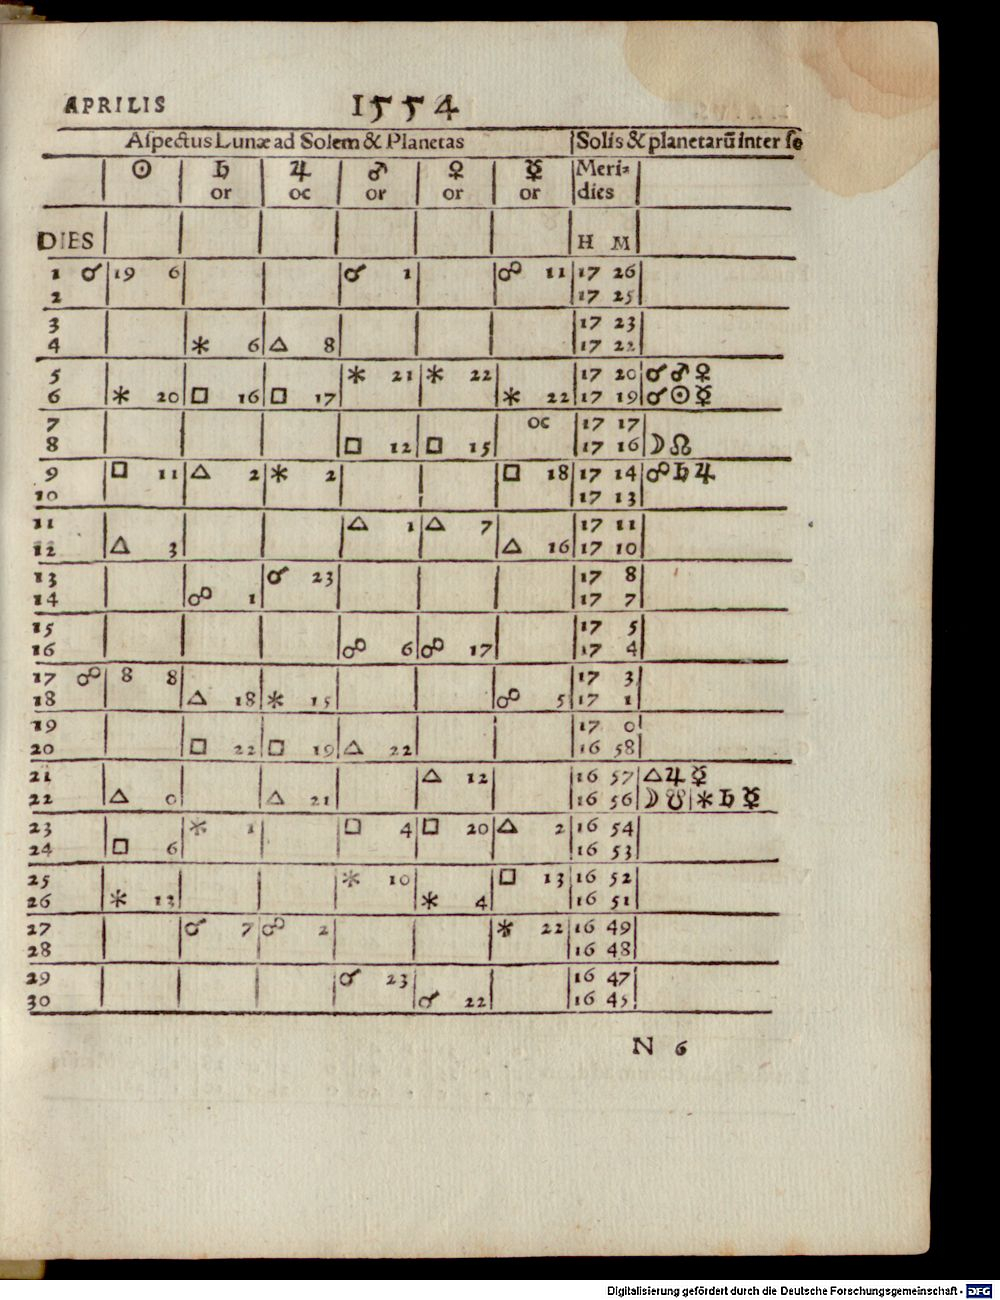 APRILIS 1554
Aſpectus Lunæ ad Solem & Planetas Solis & planetarū inter ſe
☉ ♄ ♃ ♂ ♀ ☿ Meri⸗
or oc or or or dies
DIES H M
1 ☌ 19 6 ☌ 1 ☍ 11 17 26
2 17 25
3 17 23
4 ⚹ 6 △ 8 17 22
5 ⚹ 21 ⚹ 22 17 20 ☌ ♂ ♀
6 ⚹ 20 □ 16 □ 17 ⚹ 22 17 19 ☌ ☉ ☿
7 oc 17 17
8 □ 12 □ 15 17 16 ☽ ☊
9 □ 11 △ 2 ⚹ 2 □ 18 17 14 ☍ ♄ ♃
10 17 13
11 △ 1 △ 7 17 11
12 △ 3 △ 16 17 10
13 ☌ 23 17 8
14 ☍ 1 17 7
15 17 5
16 ☍ 6 ☍ 17 17 4
17 ☍ 8 8 17 3
18 △ 18 ⚹ 15 ☍ 5 17 1
19 17 0
20 □ 22 □ 19 △ 22 16 58
21 △ 12 16 57 △ ♃ ☿
22 △ 0 △ 21 16 56 ☽ ☋ ⚹ ♄ ☿
23 ⚹ 1 □ 4 □ 20 △ 2 16 54
24 □ 6 16 53
25 ⚹ 10 □ 13 16 52
26 ⚹ 12 ⚹ 4 16 51
27 ☌ 7 ☍ 2 ⚹ 22 16 49
28 16 48
29 ☌ 23 16 47
30 ☌ 22 16 45
N 6
Digitalisierung gefördert durch die Deutsche Forschungsgemeinschaft - DFG